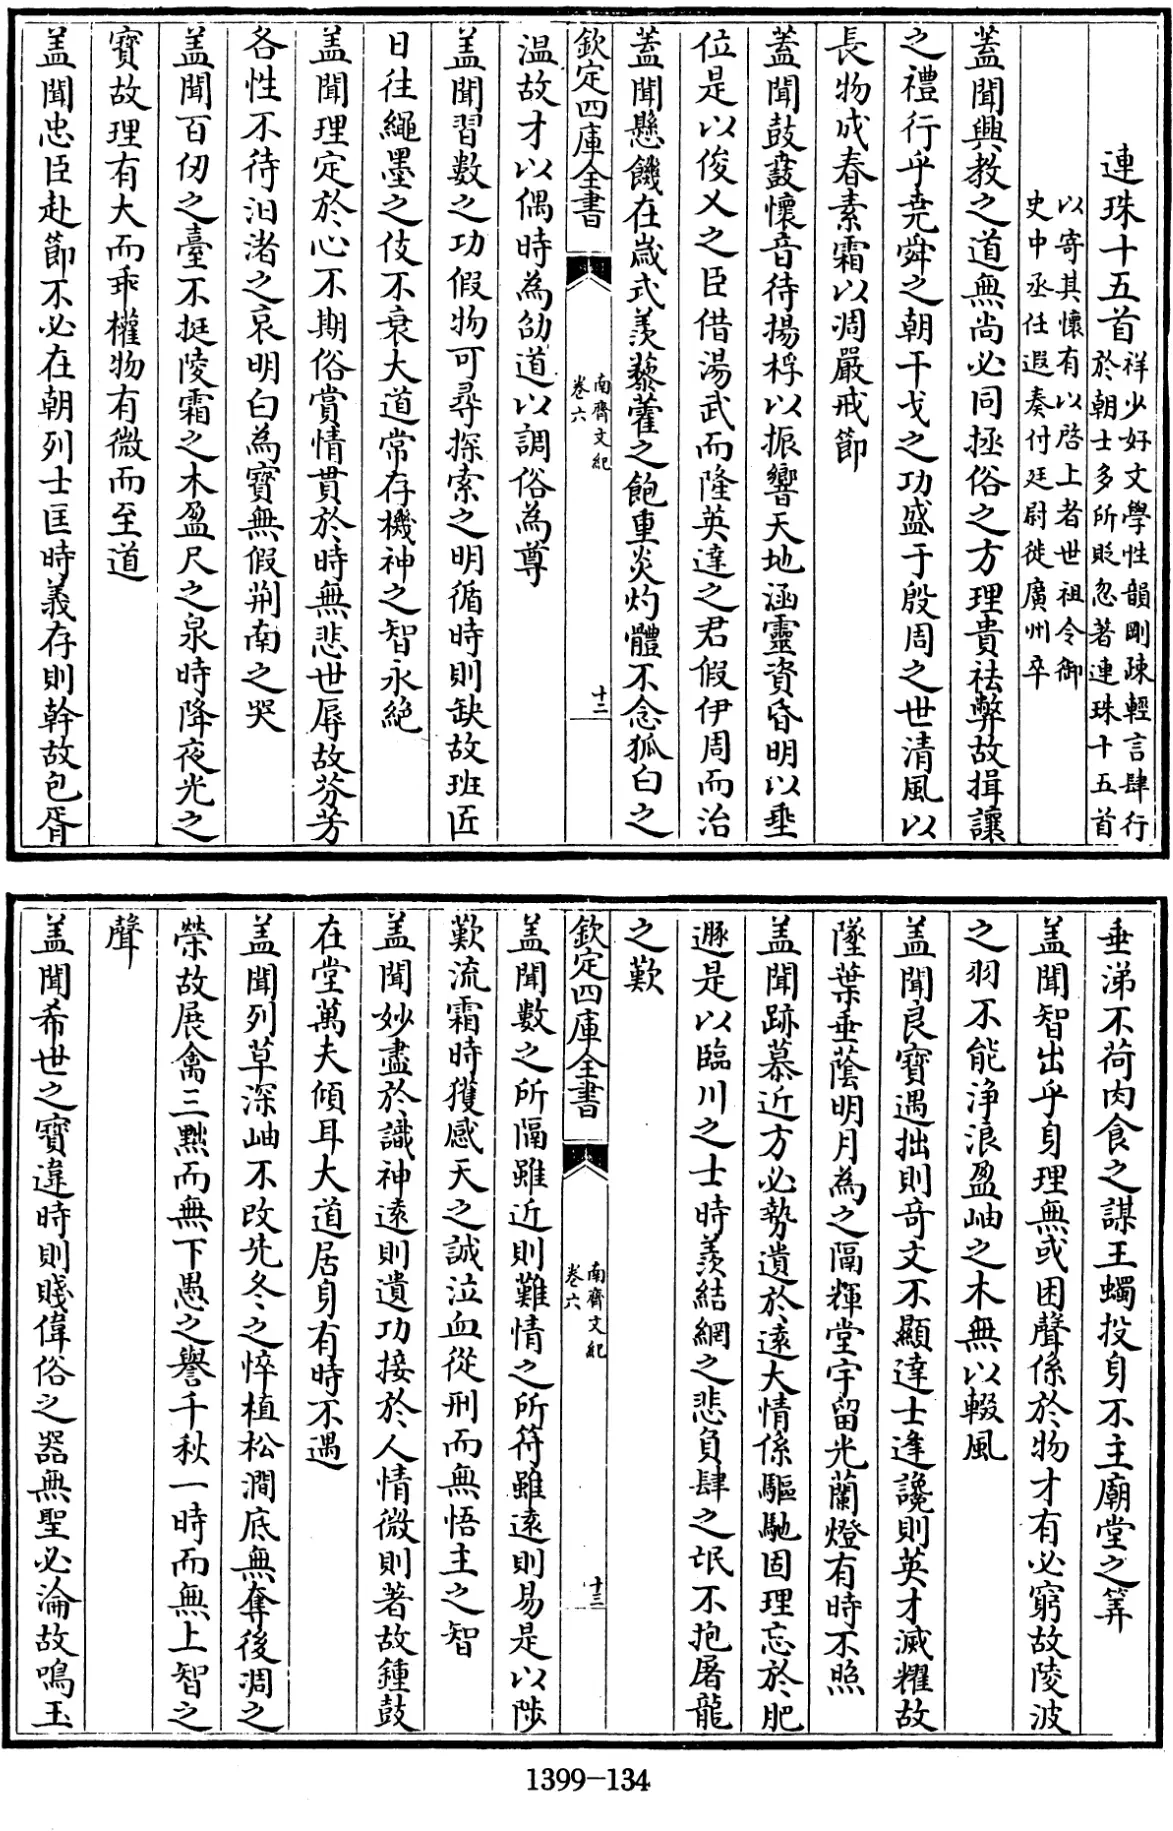 連珠十五首祥少好文學性韻剛疎輕言肆行
於朝士多所貶忽著連珠十五首
以寄其懷有以啓上者世祖令御
史中丞任遐奏付廷尉徙廣州卒
蓋聞興教之道無尚必同拯俗之方理貴祛弊故揖讓
之禮行乎堯舜之朝干戈之功盛于殷周之世清風以
長物成春素霜以凋嚴戒節
蓋聞鼓鼖懷音待揚桴以振響天地涵靈資昏明以垂
位是以俊乂之臣借湯武而隆英達之君假伊周而治
蓋聞懸饑在歳式羨藜藿之飽重炎灼體不念狐白之
欽定四庫全書
南齊文紀
卷六
十二
温故才以偶時為劭道以調俗為尊
盖聞習數之功假物可尋探索之明循時則缺故班匠
日往繩墨之伎不衰大道常存機神之智永絶
盖聞理定於心不期俗賞情貫於時無悲世辱故芬芳
各性不待汨渚之哀明白為寳無假荆南之哭
盖聞百仞之臺不挺陵霜之木盈尺之泉時降夜光之
寳故理有大而乖權物有微而至道
盖聞忠臣赴節不必在朝列士匡時義存則幹故包胥
垂涕不荷肉食之謀王蠋投身不主廟堂之筭
盖聞智出乎身理無或困聲係於物才有必窮故陵波
之羽不能浄浪盈岫之木無以輟風
盖聞良寳遇拙則奇文不顯達士逢讒則英才滅耀故
墜葉垂蔭明月為之隔輝堂宇留光蘭燈有時不照
盖聞跡慕近方必勢遺於遠大情係驅馳固理忘於肥
遯是以臨川之士時羨結網之悲負肆之氓不抱屠龍
之歎
欽定四庫全書
南齊文紀
卷六
十三
盖聞數之所隔雖近則難情之所符雖遠則易是以陟
歎流霜時獲感天之誠泣血從刑而無悟主之智
盖聞妙盡於識神遠則遺功接於人情微則著故鍾鼓
在堂萬夫傾耳大道居身有時不遇
盖聞列草深岫不改先冬之悴植松澗底無奪後凋之
榮故展禽三黜而無下愚之譽千秋一時而無上智之
聲
盖聞希世之寳違時則賤偉俗之器無聖必淪故鳴玉
1399-134